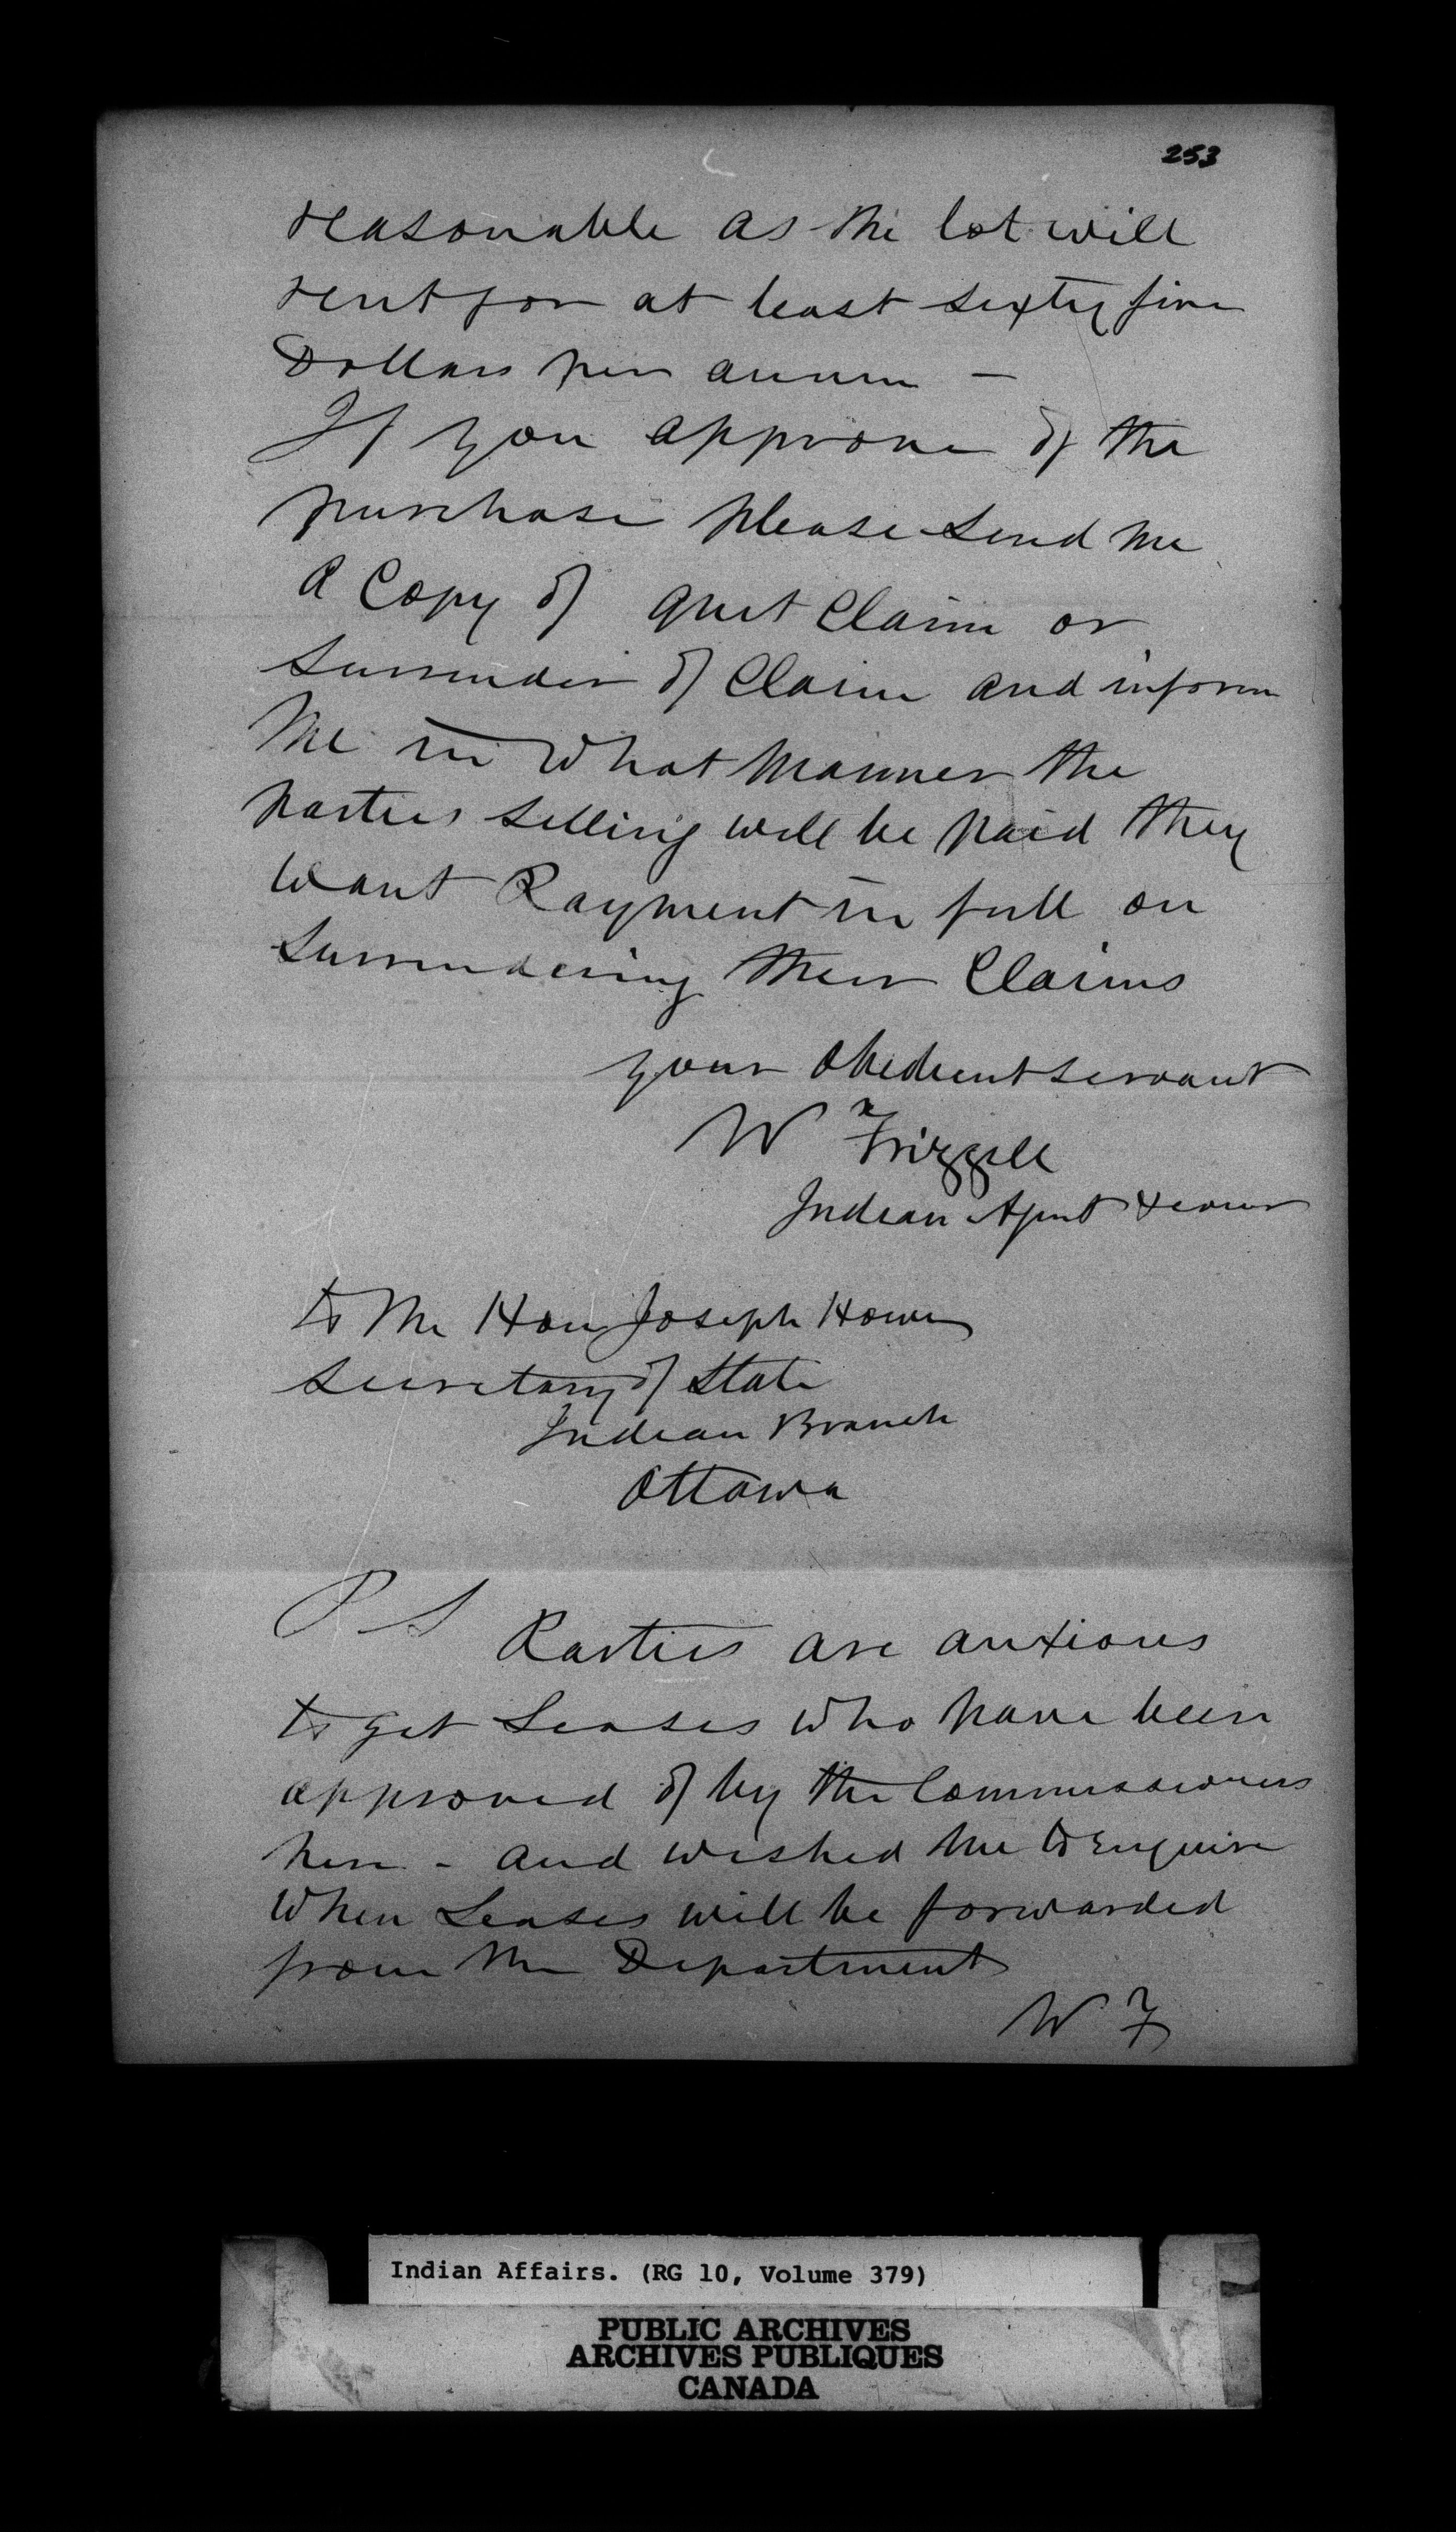 253
reasonable as the lot will
rent for at least sixty five
Dollars per annum —
If you approve of the
purchase please send me
a Copy of quit Claim or
surrender of Claim and inform
me in what manner the
parties selling will be paid they
want Payment in full on
surrendering their Claims
your obedient servant
W Frizzell
Indian Agent
to the Hon Joseph Howe
Secretary of State
Indian Branch
Ottawa
P S Parties are anxious
to get Leases who have been
approved of by the Commissioners
here - and wished me to Enquire
when Leases will be forwarded
from the Department
W F
Indian Affairs. (RG 10, Volume 379)
PUBLIC ARCHIVES
ARCHIVES PUBLIQUES
CANADA